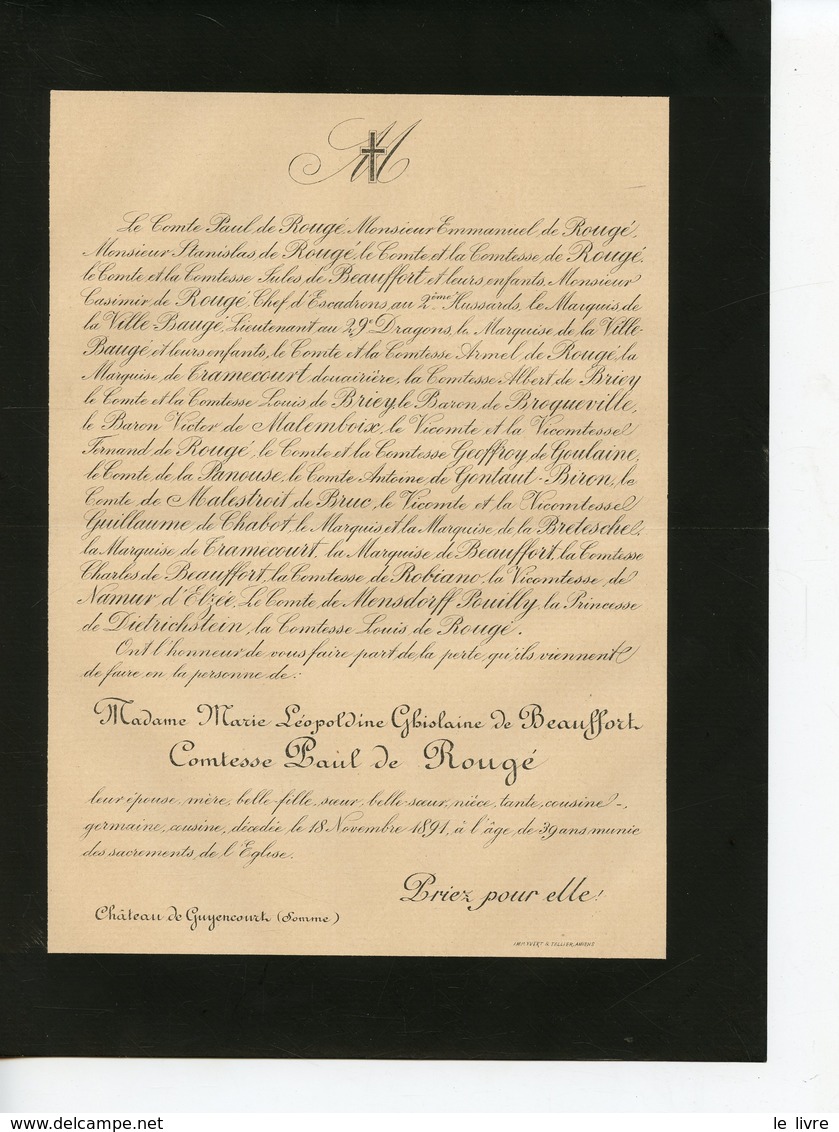 M
Le Comte Paul de Rougé, Monsieur Emmanuel de Rougé,
Monsieur Stanislas de Rougé, le Comte et la Comtesse de Rougé,
le Comte et la Comtesse Jules de Beauffort et leurs enfants, Monsieur
Casimir de Rougé, Chef d'Escadrons au 2ème Hussards, le Marquis de
la Ville-Baugé, Lieutenant au 29e Dragons, la Marquise de la Ville-
Baugé et leurs enfants, le Comte et la Comtesse Armel de Rougé, la
Marquise de Tramecourt douairière, la Comtesse Albert de Briey
le Comte et la Comtesse Louis de Briey, le Baron de Broqueville,
le Baron Victor de Matemboix, le Vicomte et la Vicomtesse
Fernand de Rougé, le Comte et la Comtesse Geoffroy de Goulaine,
le Comte de la Panouse, le Comte Antoine de Gontaut-Biron, le
Comte de Malestroit de Bruc, le Vicomte et la Vicomtesse
Guillaume de Chabot, le Marquis et la Marquise de la Bretesche,
la Marquise de Tramecourt, la Marquise de Beauffort, la Comtesse
Charles de Beauffort, la Comtesse de Robiano, la Vicomtesse de
Namur d'Elzée, Le Comte de Mensdorff Pouilly, la Princesse
de Dietrichstein, la Comtesse Louis de Rougé.
Ont l'honneur de vous faire part de la perte qu'ils viennent
de faire en la personne de:
Madame Marie Léopoldine Ghislaine de Beauffort
Comtesse Paul de Rougé
leur épouse, mère, belle-fille, sœur, belle-sœur, nièce, tante, cousine-
germaine, cousine, décédée le 18 Novembre 1891, à l'âge de 39 ans munie
des sacrements de l'Eglise.
Priez pour elle!
Château de Guyencourt (Somme)
IMP. YVERT & TELLIER, AMIENS
le livre